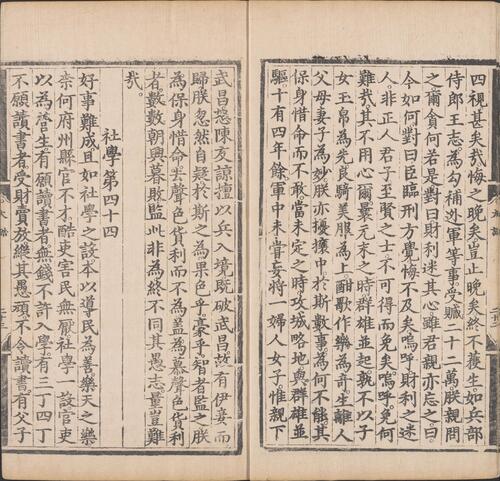 四視甚矣哉悔之晚矣豈止晚矣終不獲生如兵部
侍郎王志為勾補逃軍等事受贓二十二萬朕親問
之爾貪何若是對曰財利迷其心雖君親亦忘之曰
今如何對曰臣臨刑方覺悔不及矣嗚呼財利之迷
人非正人君子至賢之士不可得而免矣嗚呼免何
難哉其不用心爾曩元末之時群雄並起孰不以子
女玉帛為先良騎美服為上酣歌作樂為奇生離人
父母妻子為妙朕亦擾攘中於斯數事為何不能其
保身惜命而不敢當未定之時攻城略地與群雄並
驅十有四年餘軍中未嘗妄將一婦人女子惟親下
武昌怒陳友諒擅以兵入境既破武昌故有伊妾而
歸朕忽然自疑於斯之為果色乎豪乎智者監之朕
為保身惜命去聲色貨利而不為蓋為慕聲色貨利
者數數朝興暮敗監此非為終不同其愚志量豈難
哉
社學第四十四
好事難成且如社學之設本以導民為善樂天之樂
柰何府州縣官不才酷吏害民無厭社學一設官吏
以為營生有願讀書者無錢不許入學有三丁四丁
不願讀書者受財賣放縱其愚頑不令讀書有父子
大誥